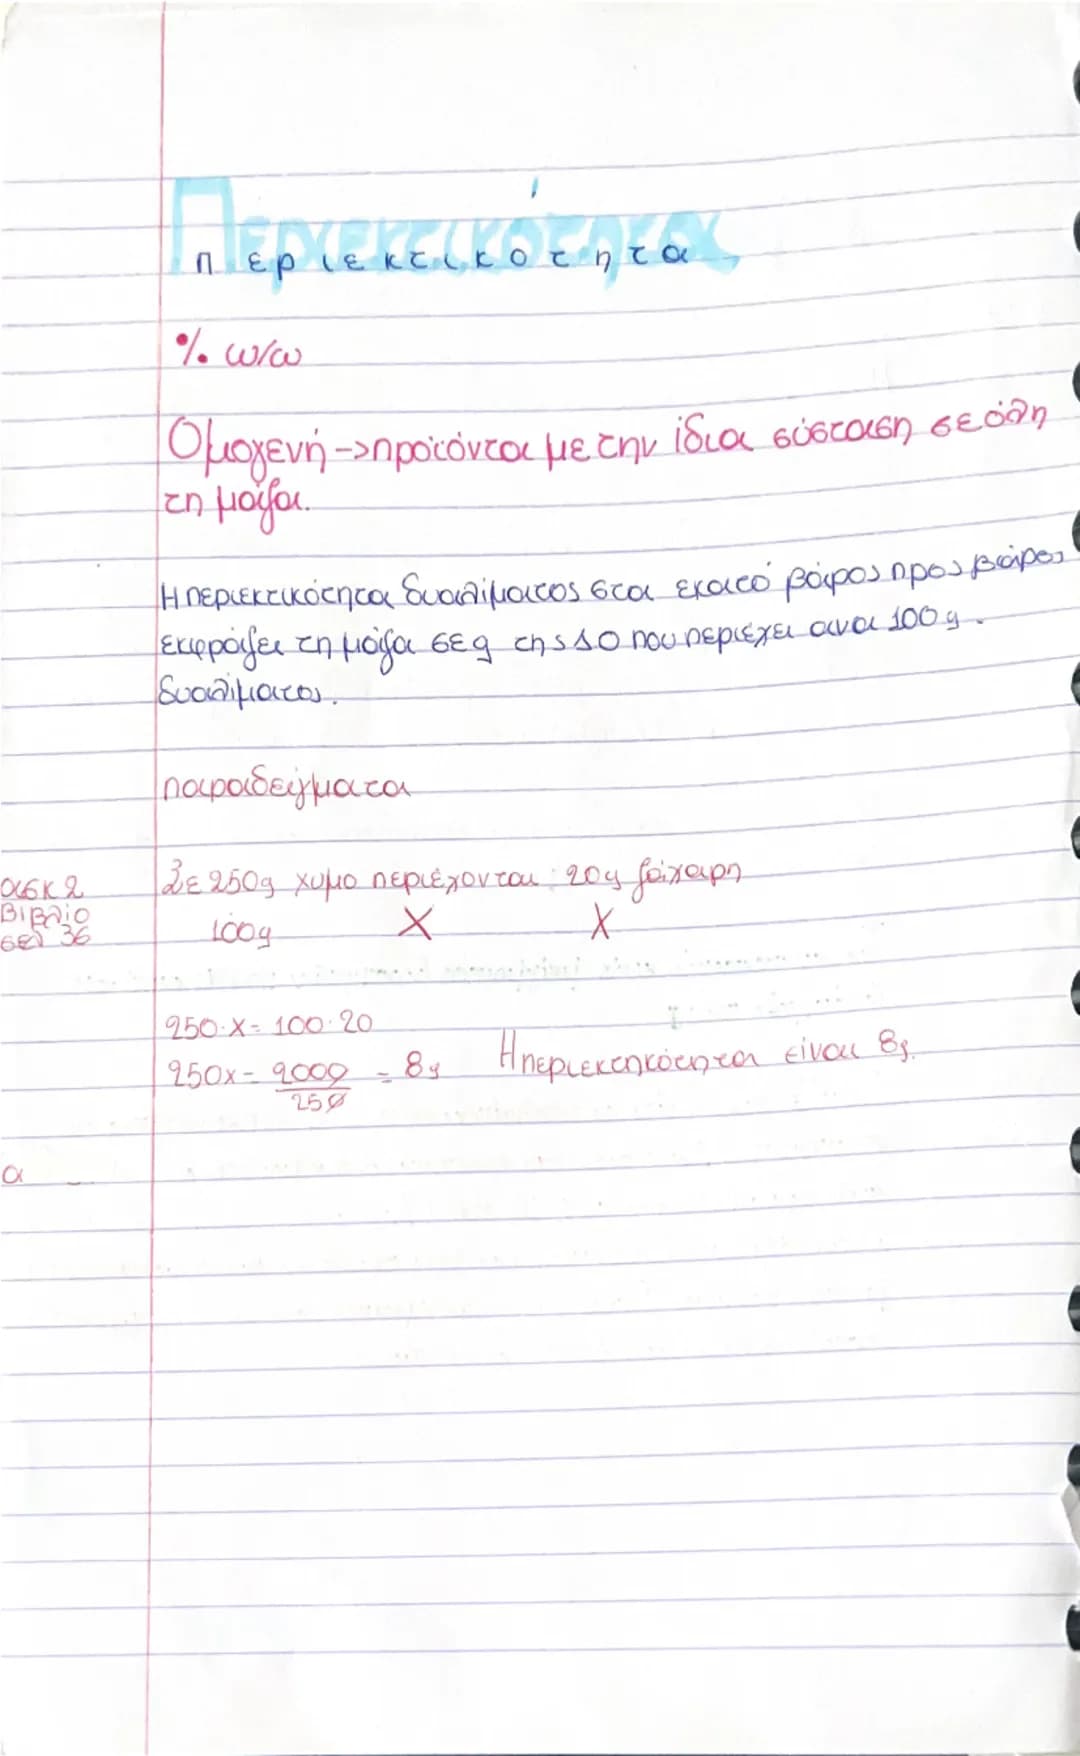 Περιεκτικότητα
περιεκτικότητα
% w/w
Ομογενή->προϊόντα με την ίδια σύσταση σε όλη
τη μάζα.
Η περιεκτικότητα διαλύματος στα εκατό βάρος προς βάρος
εκφράζει τη μάζα σε g της ΔΟ που περιέχει ανα 100g.
διαλύματος.
παραδείγματα
ασκ 2
Βιβλίο
σελ 36
Σε 250g χυμο περιέχονται 20g ζάχαρη
100g X X
250·x = 100·20
250x = 2000/250 = 8g Η περιεκτηκότητα είναι 8g.
α